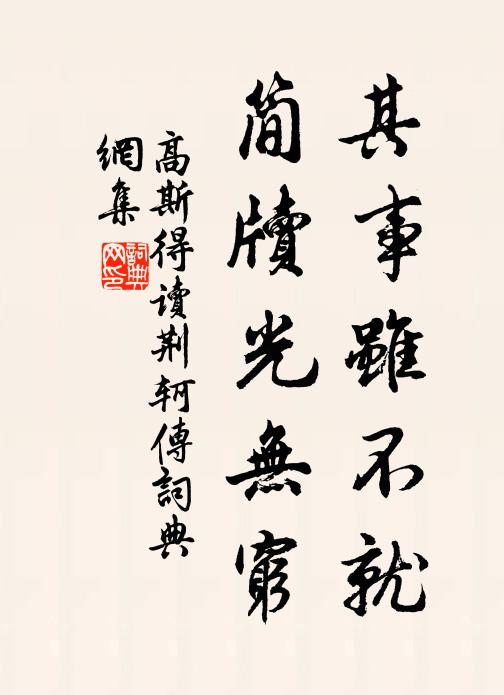 其事雖不就
簡牘光無窮
高斯得讀荆軻傳詞典
網集
詞典網印